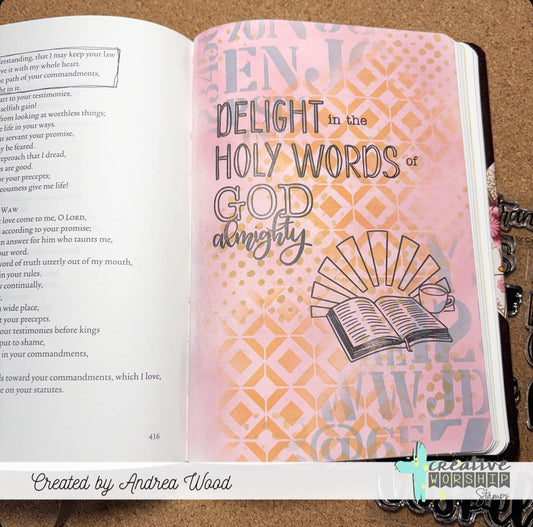 derstanding, that I may keep your law
ve it with my whole heart.
e path of your commandments,
ht in it.
art to your testimonies,
selfish gain!
from looking at worthless things;
e life in your ways.
r servant your promise,
y be feared.
eproach that I dread,
es are good.
or your precepts;
eousness give me life!
WAW
t love come to me, O LORD,
according to your promise;
n answer for him who taunts me,
your word.
word of truth utterly out of my mouth,
in your rules.
continually,
wide place,
t your precepts.
ur testimonies before kings
put to shame,
in your commandments,
ds toward your commandments, which I love,
e on your statutes.
416
ENJO
DELIGHT in the
HOLY WORDS of
GOD
almighty
WWJD
Created by Andrea Wood
creative
WORSHIP
Stamps